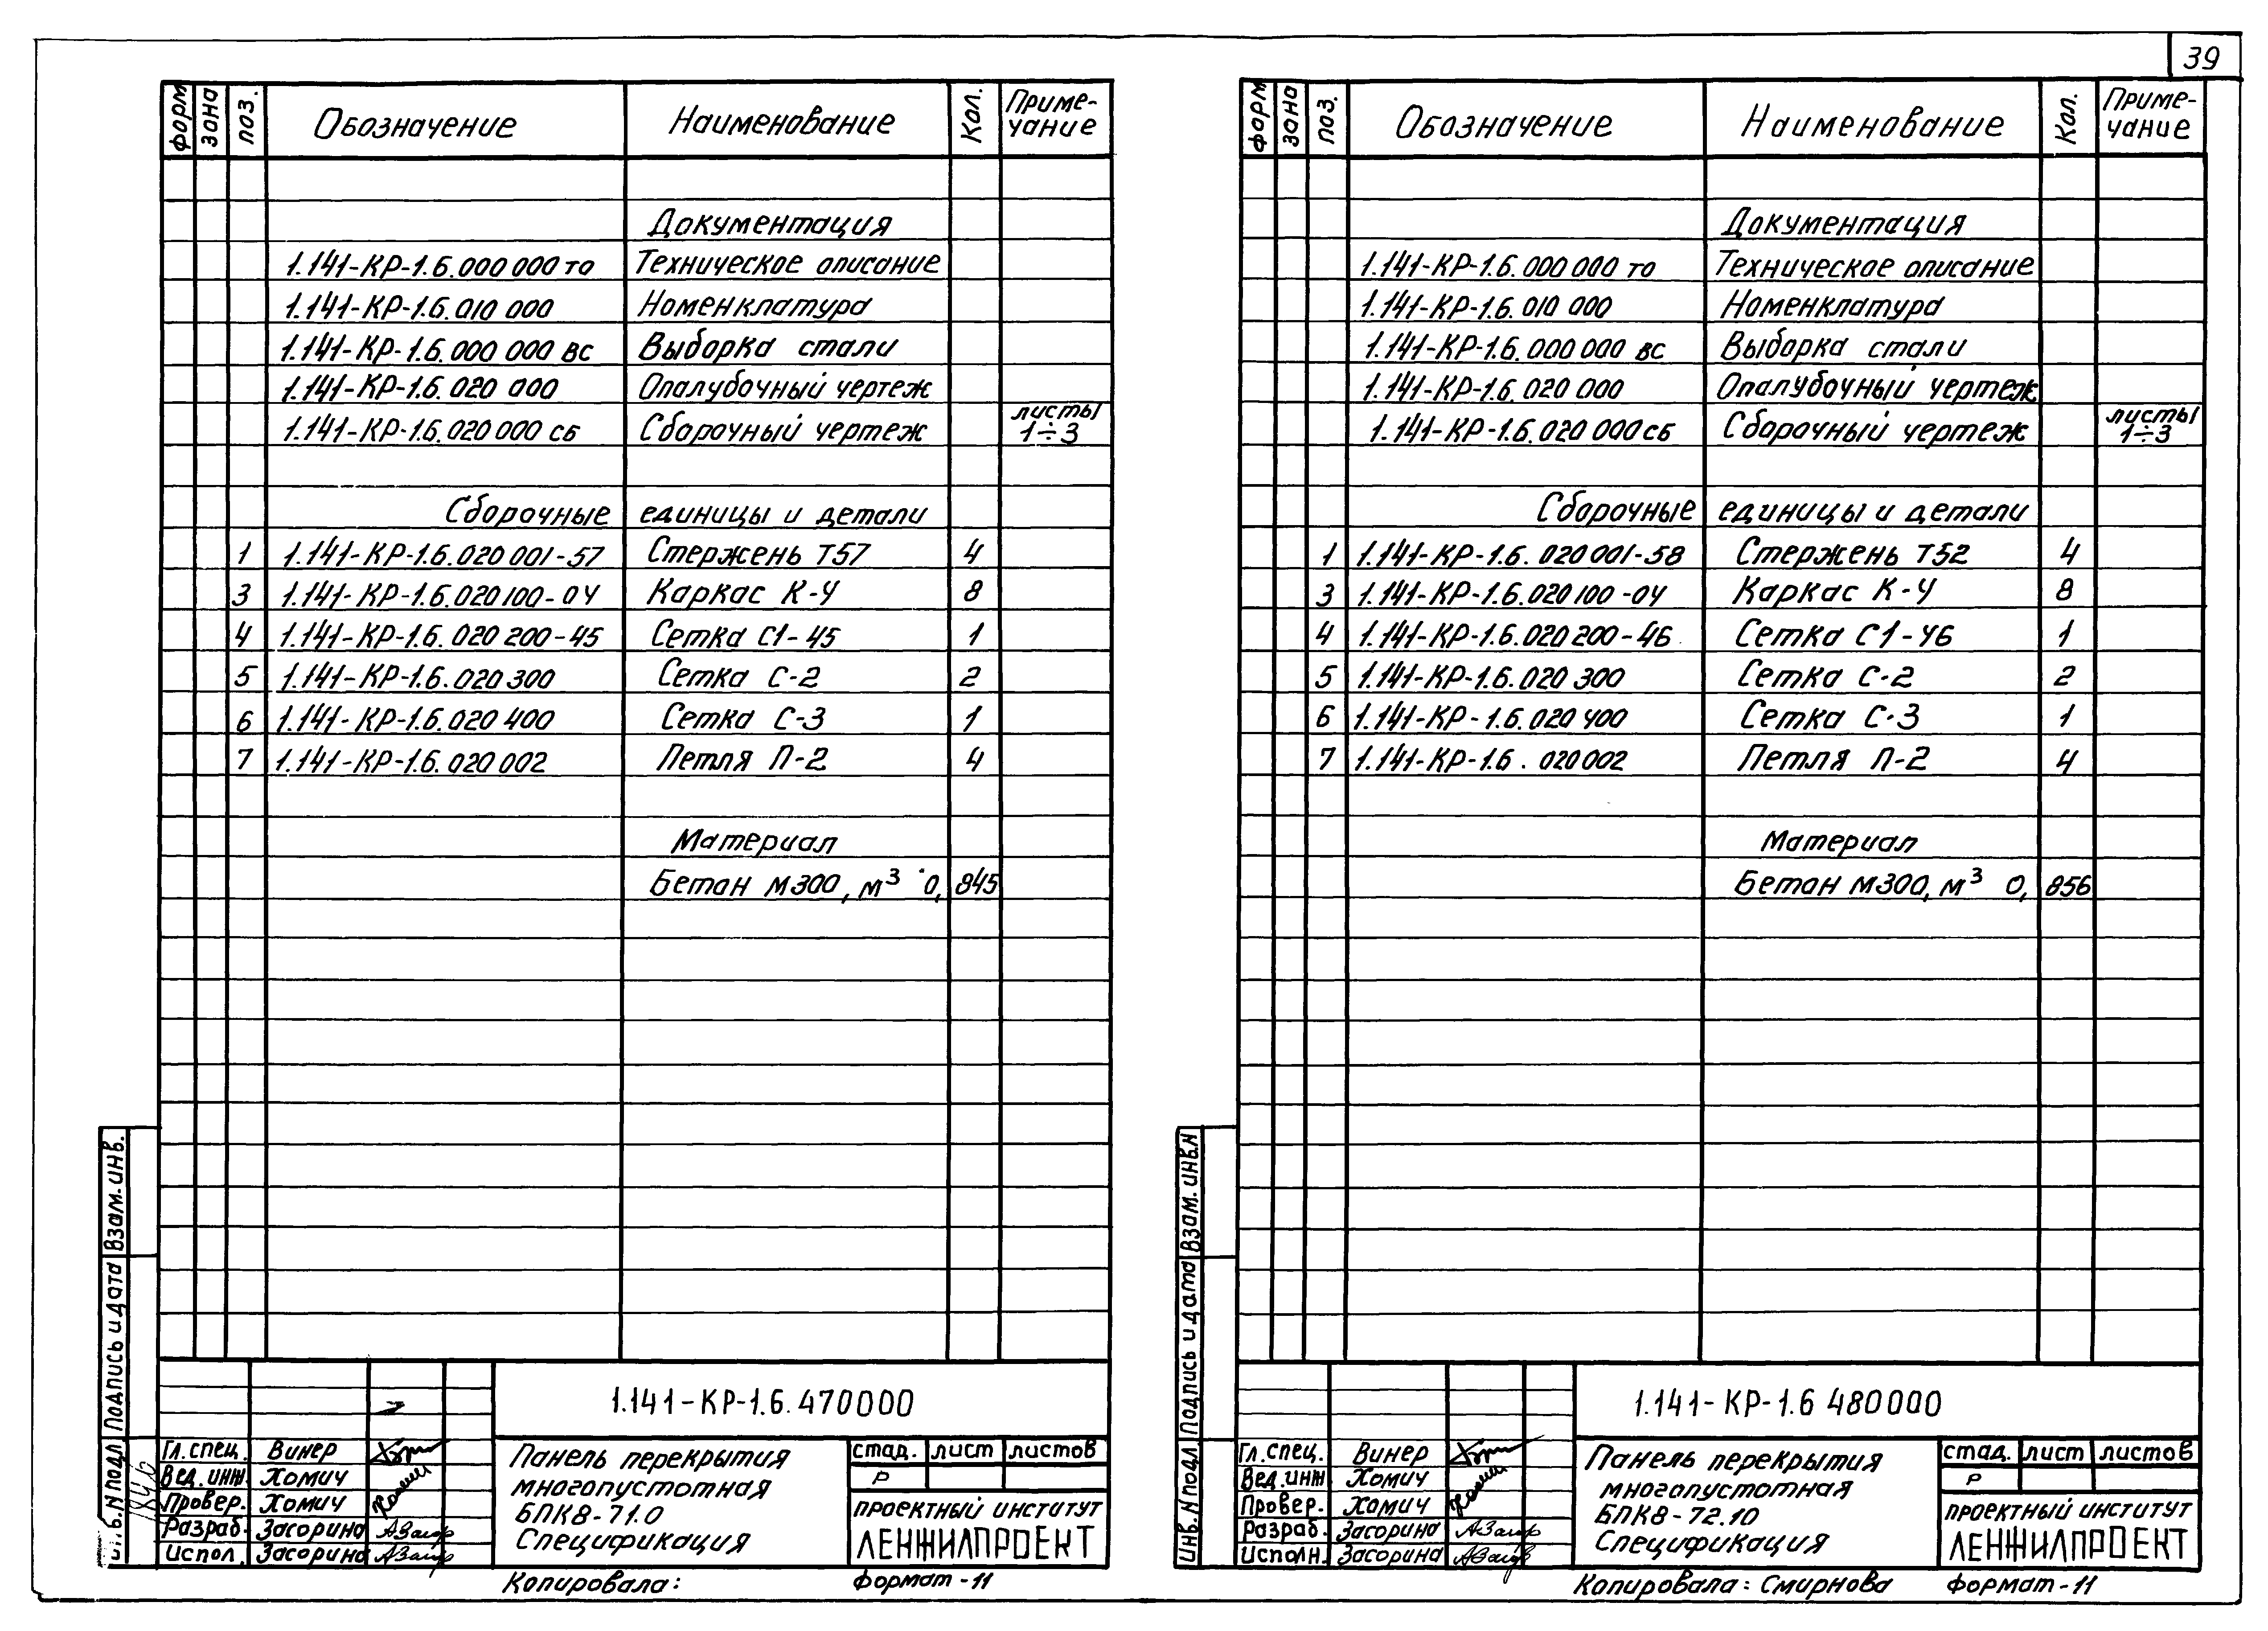 39
форм зона поз. Обозначение Наименование Кол. Приме-
чание
Документация
1.141-КР-1.6.000 000 то Техническое описание
1.141-КР-1.6.010 000 Номенклатура
1.141-КР-1.6.000 000 вс Выборка стали
1.141-КР-1.6.020 000 Опалубочный чертеж
1.141-КР-1.6.020 000 сб Сборочный чертеж листы
1÷3
Сборочные единицы и детали
1 1.141-КР-1.6.020 001-57 Стержень Т57 4
3 1.141-КР-1.6.020 100-04 Каркас К-4 8
4 1.141-КР-1.6.020 200-45 Сетка С1-45 1
5 1.141-КР-1.6.020 300 Сетка С-2 2
6 1.141-КР-1.6.020 400 Сетка С-3 1
7 1.141-КР-1.6.020 002 Петля П-2 4
Материал
Бетон М300, м³ 0,845
Взам. инв.
Подпись и дата
N подл
1.141-КР-1.6.470000
Гл. спец. Винер
Вед. инж Хомич
Провер. Хомич
Разраб. Засорина
Испол. Засорина
Панель перекрытия
многопустотная
БПК8-71.0
Спецификация
стад. лист листов
Р
ПРОЕКТНЫЙ ИНСТИТУТ
ЛЕНЖИЛПРОЕКТ
Копировала: Формат-11
форм зона поз. Обозначение Наименование Кол. Приме-
чание
Документация
1.141-КР-1.6.000 000 то Техническое описание
1.141-КР-1.6.010 000 Номенклатура
1.141-КР-1.6.000 000 вс Выборка стали
1.141-КР-1.6.020 000 Опалубочный чертеж
1.141-КР-1.6.020 000 сб Сборочный чертеж листы
1÷3
Сборочные единицы и детали
1 1.141-КР-1.6.020 001-58 Стержень Т52 4
3 1.141-КР-1.6.020 100-04 Каркас К-4 8
4 1.141-КР-1.6.020 200-46 Сетка С1-46 1
5 1.141-КР-1.6.020 300 Сетка С-2 2
6 1.141-КР-1.6.020 400 Сетка С-3 1
7 1.141-КР-1.6.020 002 Петля П-2 4
Материал
Бетон М300, м³ 0,856
Взам. инв.N
Подпись и дата
Инв. N подл
1.141-КР-1.6 480000
Гл. спец. Винер
Вед. инж Хомич
Провер. Хомич
Разраб. Засорина
Исполн. Засорина
Панель перекрытия
многопустотная
БПК8-72.10
Спецификация
стад. лист листов
Р
ПРОЕКТНЫЙ ИНСТИТУТ
ЛЕНЖИЛПРОЕКТ
Копировала: Смирнова Формат-11